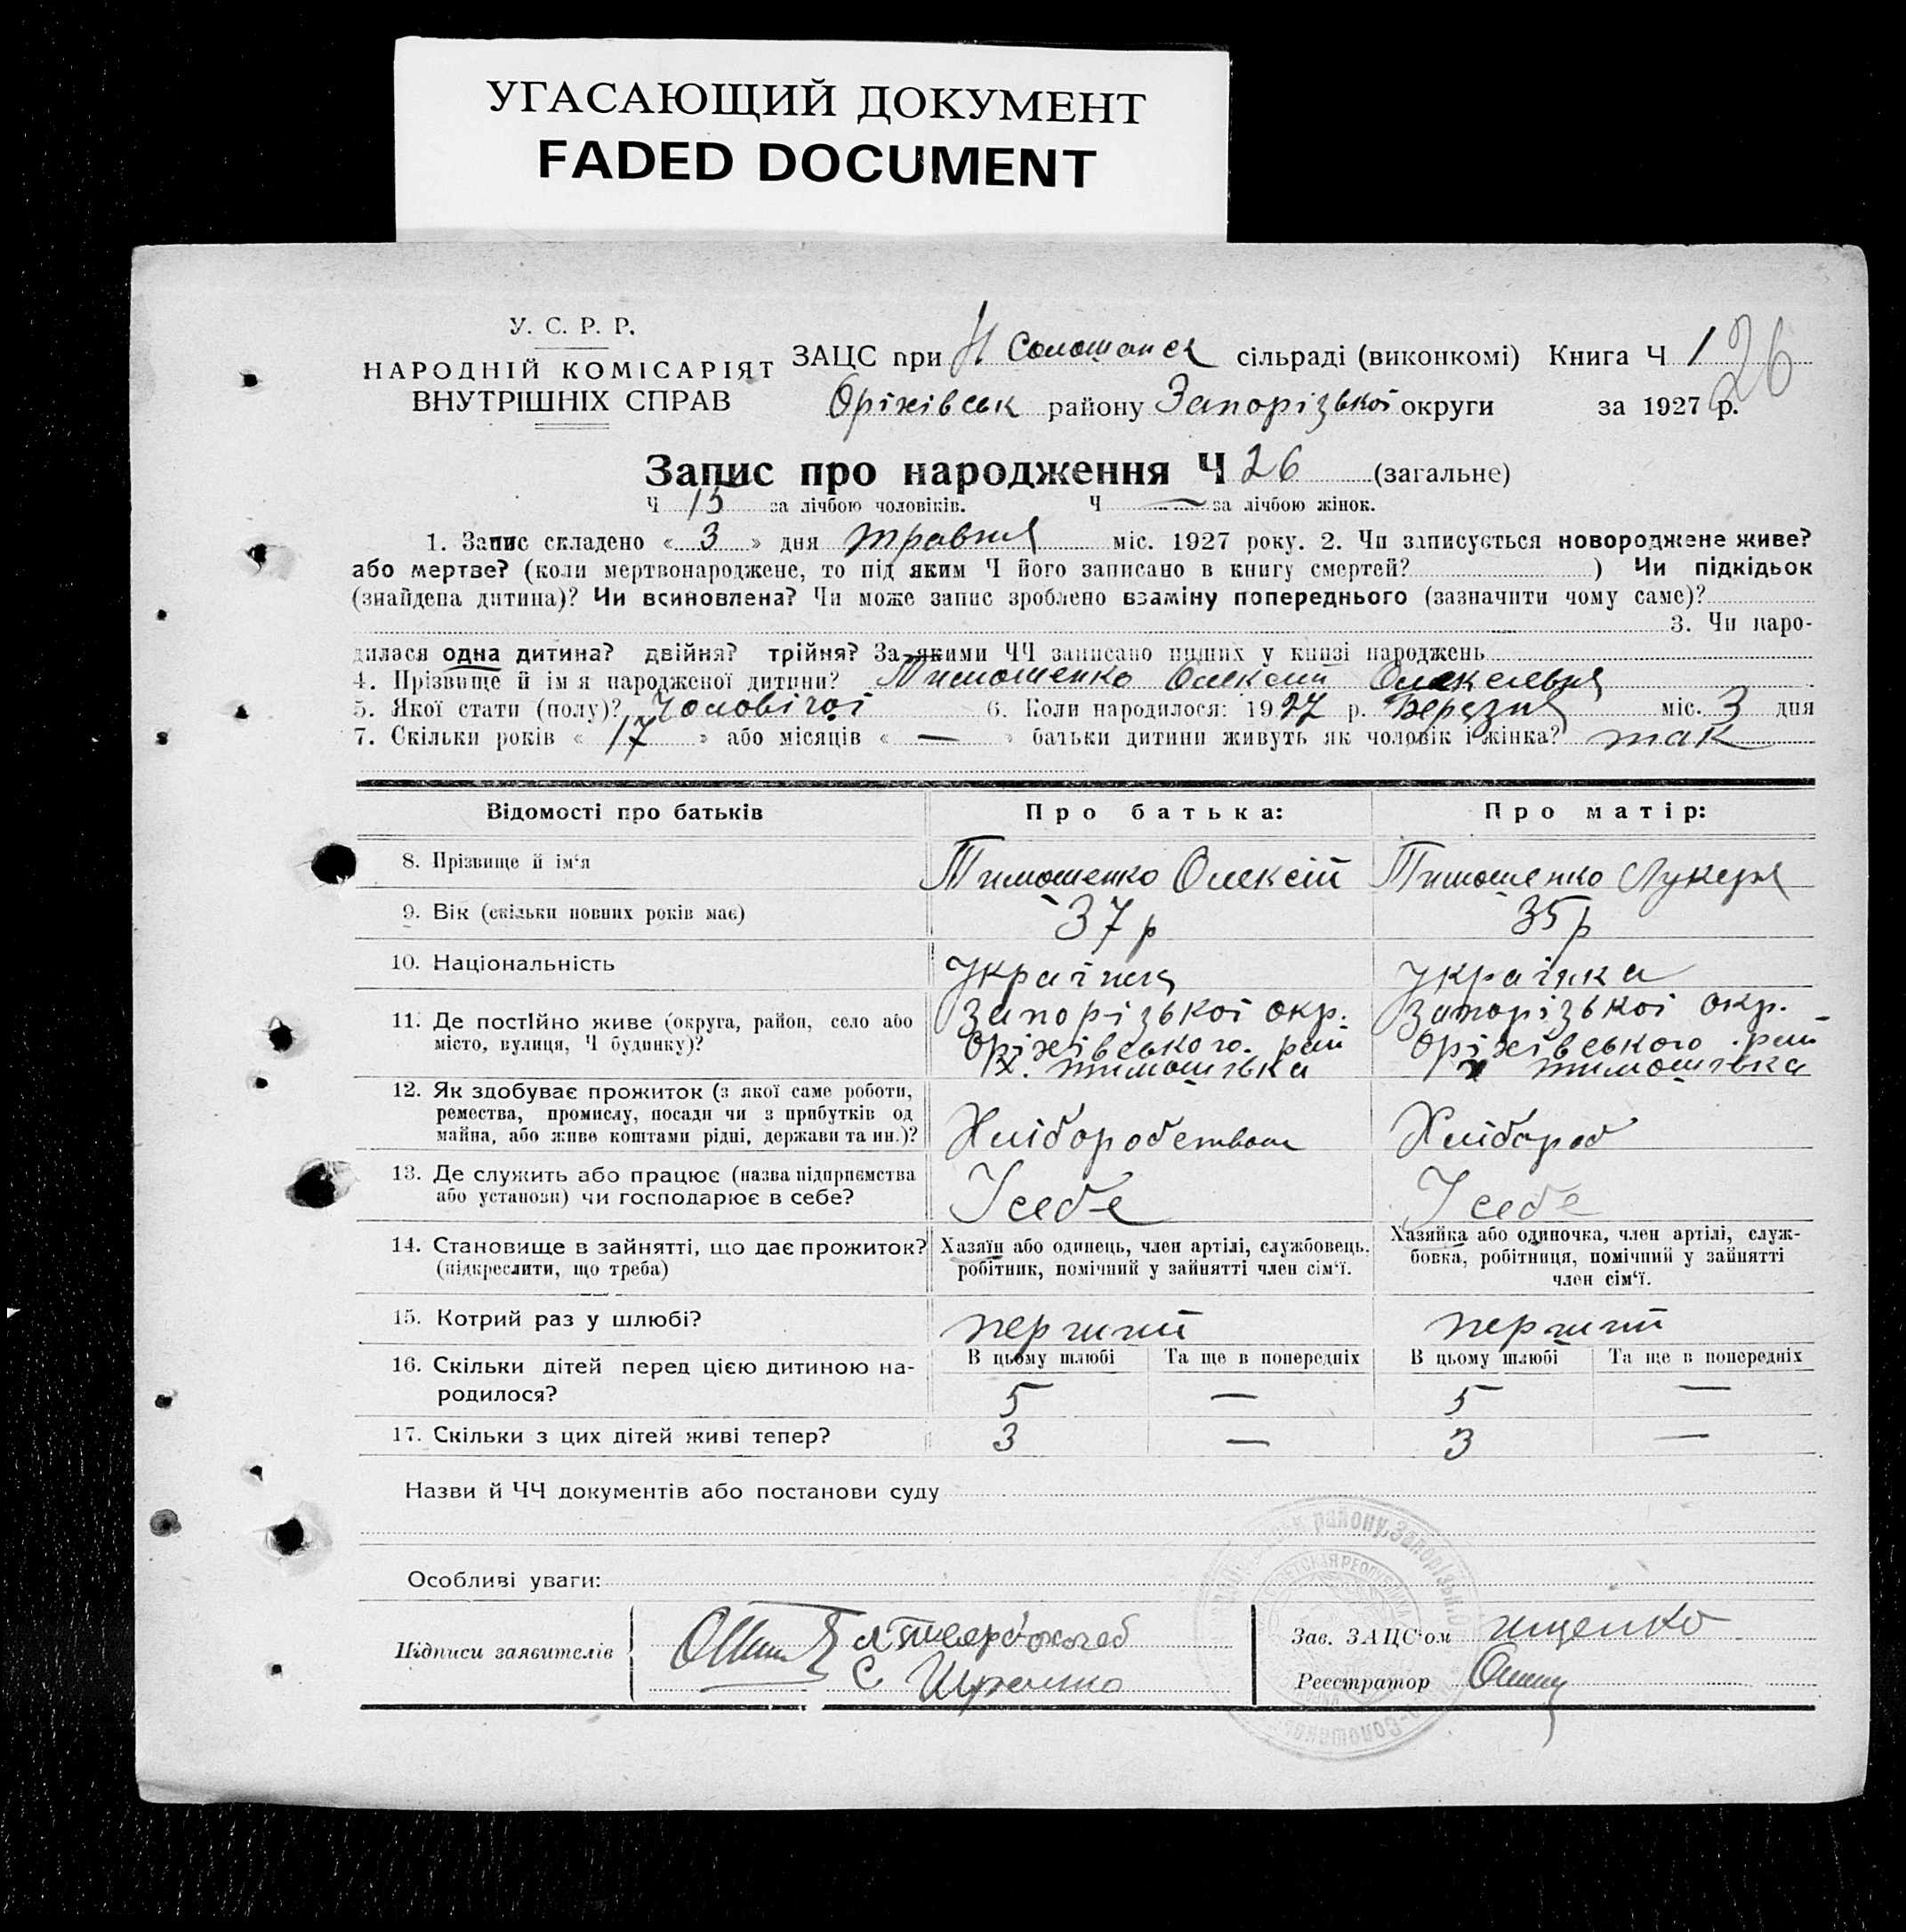 УГАСАЮЩИЙ ДОКУМЕНТ
FADED DOCUMENT
У. С. Р. Р.
НАРОДНІЙ КОМІСАРІЯТ
ВНУТРІШНІХ СПРАВ
ЗАЦС при сільраді (виконкомі) Книга Ч 1 26
Оріхівськ району Запорізької округи за 1927 р.
Запис про народження Ч 26 (загальне)
Ч 15 за лічбою чоловіків. Ч — за лічбою жінок.
1. Запис складено « 3 » дня травня міс. 1927 року. 2. Чи записується новороджене живе?
або мертве? (коли мертвонароджене, то під яким Ч його записано в книгу смертей? ) Чи підкідьок
(знайдена дитина)? Чи всиновлена? Чи може запис зроблено взаміну попереднього (зазначити чому саме)?
3. Чи наро-
дилася одна дитина? двійня? трійня? За якими ЧЧ записано инших у книзі народжень
4. Прізвище й ім я народженої дитини? Тимошенко Олексій
5. Якої стати (полу)? Чоловічої 6. Коли народилося: 1927 р. Березня міс. 3 дня
7. Скільки років « 17 » або місяців « — » батьки дитини живуть як чоловік і жінка? так
Відомості про батьків Про батька: Про матір:
8. Прізвище й ім‘я Тимошенко Олексій Тимошенко Лукеря
9. Вік (скільки повних років має) 37 р 35 р
10. Національність Українец Українка
11. Де постійно живе (округа, район, село або
місто, вулиця, Ч будинку)?
Запорізької окр.
Оріхівського рай
х. Тимошівка
Запорізької окр.
Оріхівського рай
х Тимошівка
12. Як здобуває прожиток (з якої саме роботи,
ремества, промислу, посади чи з прибутків од
майна, або живе коштами рідні, держави та ин.)?
Хліборобством Хлібороб
13. Де служить або працює (назва підприємства
або установи) чи господарює в себе?
У себе У себе
14. Становище в зайнятті, що дає прожиток?
(підкреслити, що треба)
Хазяїн або одинець, член артілі, службовець,
робітник, помічний у зайнятті член сім‘ї.
Хазяйка або одиночка, член артілі, служ-
бовка, робітниця, помічний у зайнятті
член сім‘ї.
15. Котрий раз у шлюбі? перший перший
16. Скільки дітей перед цією дитиною на-
родилося?
В цьому шлюбі Та ще в попередніх В цьому шлюбі Та ще в попередніх
5 — 5 —
17. Скільки з цих дітей живі тепер? 3 — 3 —
Назви й ЧЧ документів або постанови суду
Особливі уваги:
Підписи заявителів
Зав. ЗАЦС‘ом Іщенко
Реєстратор